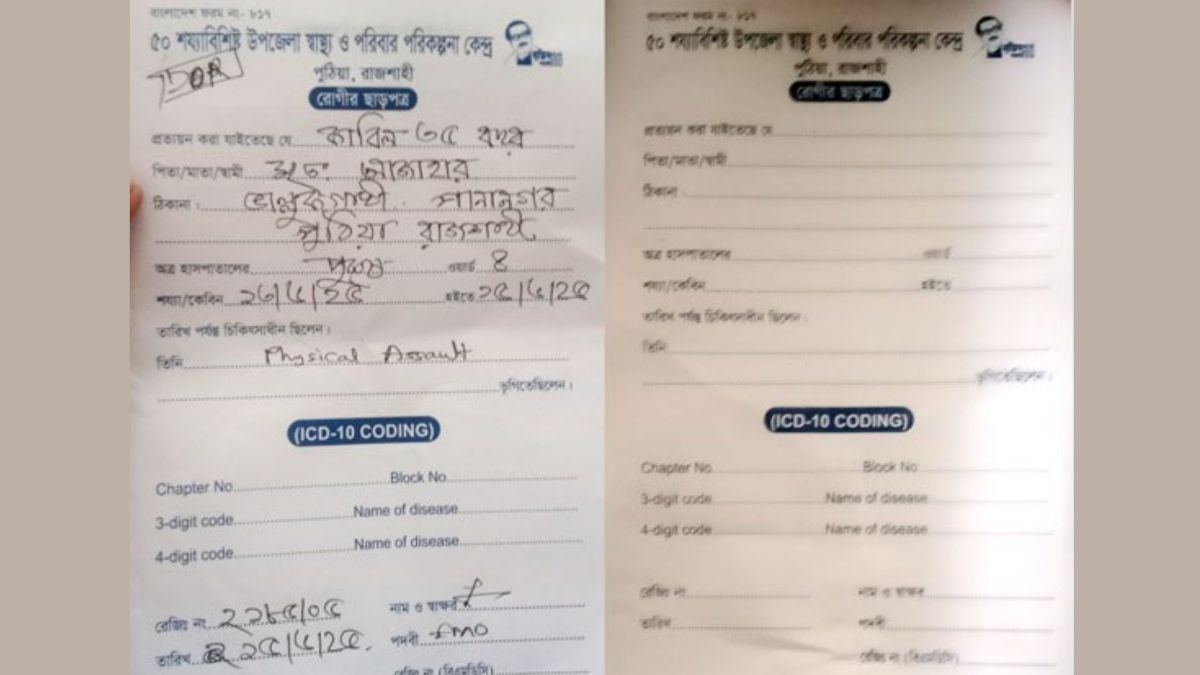 বাংলাদেশ ফরম নং- ৮১৭
৫০ শয্যাবিশিষ্ট উপজেলা স্বাস্থ্য ও পরিবার পরিকল্পনা কেন্দ্র
পুঠিয়া, রাজশাহী
রোগীর ছাড়পত্র
প্রত্যয়ন করা যাইতেছে যে
পিতা/মাতা/স্বামী মোঃ
ঠিকানা :
পুঠিয়া রাজশাহী
অত্র হাসপাতালের পুরুষ ওয়ার্ড
শয্যা/কেবিন হইতে ২৫/৫/২৫
তারিখ পর্যন্ত চিকিৎসাধীন ছিলেন।
তিনি Physical Assault
ভুগিতেছিলেন।
(ICD-10 CODING)
Chapter No. Block No.
3-digit code Name of disease
4-digit code Name of disease
রেজিঃ নং নাম ও স্বাক্ষর
তারিখ ২৫/৫/২৫. পদবী EMO
রেজিঃ নং (বিএমডিসি)
বাংলাদেশ ফরম নং- ৮১৭
৫০ শয্যাবিশিষ্ট উপজেলা স্বাস্থ্য ও পরিবার পরিকল্পনা কেন্দ্র
পুঠিয়া, রাজশাহী
রোগীর ছাড়পত্র
প্রত্যয়ন করা যাইতেছে যে
পিতা/মাতা/স্বামী
ঠিকানা :
অত্র হাসপাতালের ওয়ার্ড
শয্যা/কেবিন হইতে
তারিখ পর্যন্ত চিকিৎসাধীন ছিলেন।
তিনি
ভুগিতেছিলেন।
(ICD-10 CODING)
Chapter No. Block No
3-digit code Name of disease
4-digit code Name of disease
রেজিঃ নং নাম ও স্বাক্ষর
তারিখ পদবী
রেজিঃ নং (বিএমডিসি)